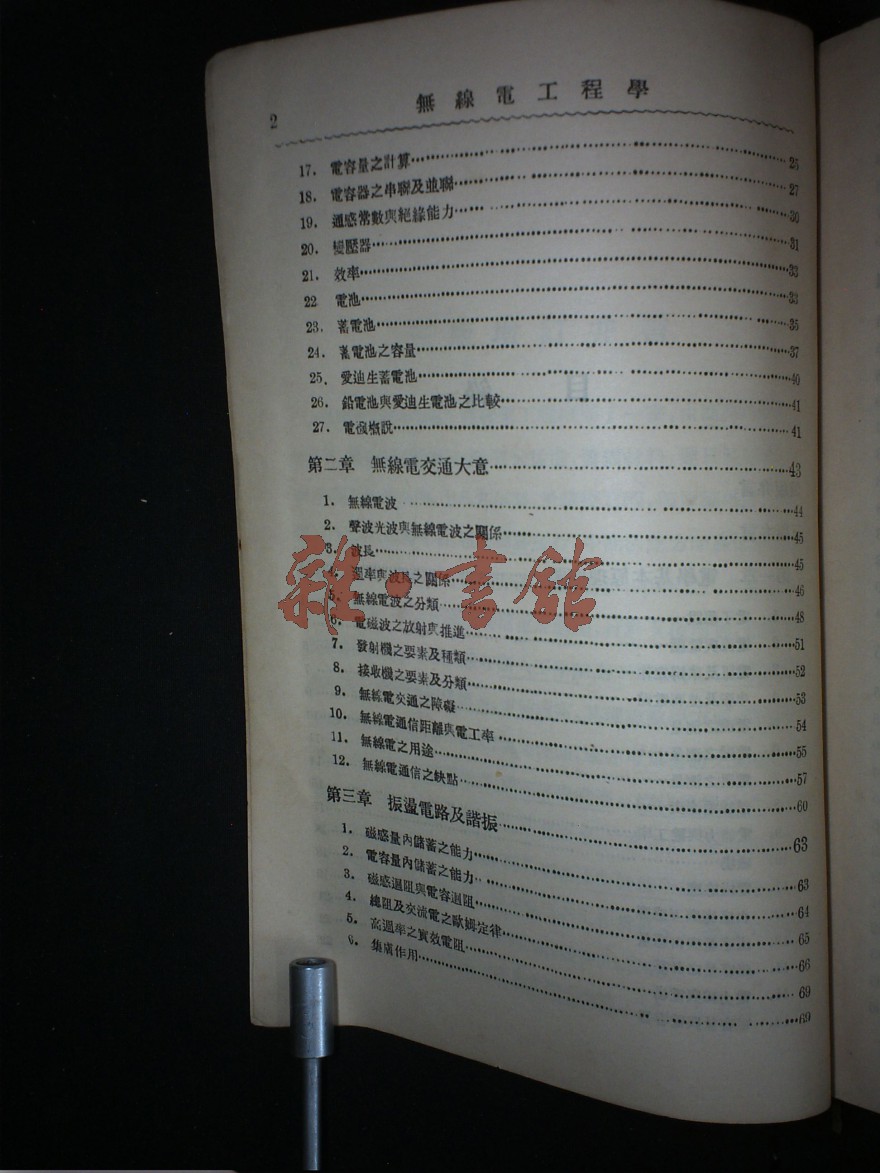 2
無線電工程學
17. 電容量之計算 25
18. 電容器之串聯及並聯 27
19. 通感常數與絕緣能力 30
20. 變壓器 31
21. 效率 33
22 電池 33
23. 蓄電池 35
24. 蓄電池之容量 37
25. 愛迪生蓄電池 40
26. 鉛電池與愛迪生電池之比較 41
27. 電磁概說 41
第二章 無線電交通大意 43
1. 無線電波 44
2. 聲波光波與無線電波之關係 45
3. 波長 45
週率與波長之關係 46
5. 無線電波之分類 48
6. 電磁波之放射與推進 51
7. 發射機之要素及種類 52
8. 接收機之要素及分類 53
9. 無線電交通之障礙 54
10. 無線電通信距離與電工率 55
11. 無線電之用途 57
12. 無線電通信之缺點 60
第三章 振盪電路及諧振 63
1. 磁感量內儲蓄之能力 63
2. 電容量內儲蓄之能力 64
3. 磁感迴阻與電容迴阻 65
4. 總阻及交流電之歐姆定律 66
5. 高週率之實效電阻 69
6. 集膚作用 69
雜·書館